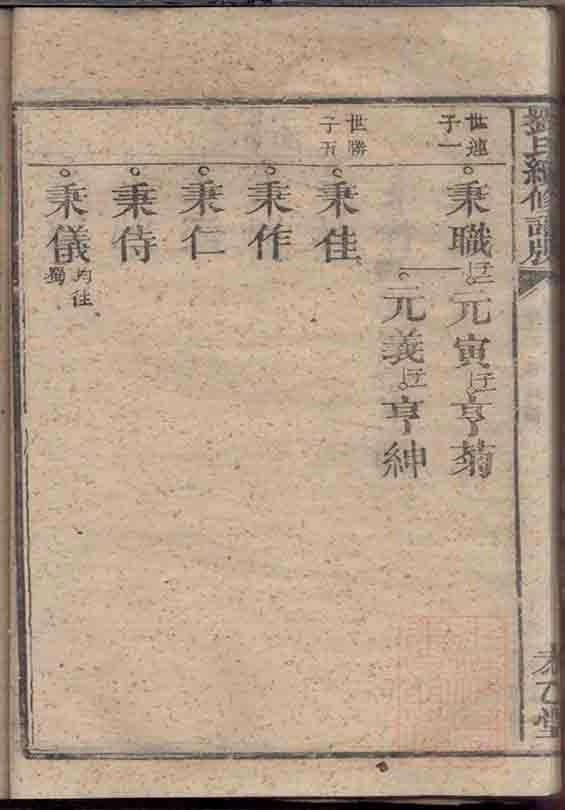 世連
子一
秉職 元寅 亨菊
元義 亨紳
世勝
子五
秉佳
秉作
秉仁
秉侍
秉儀
均往
蜀